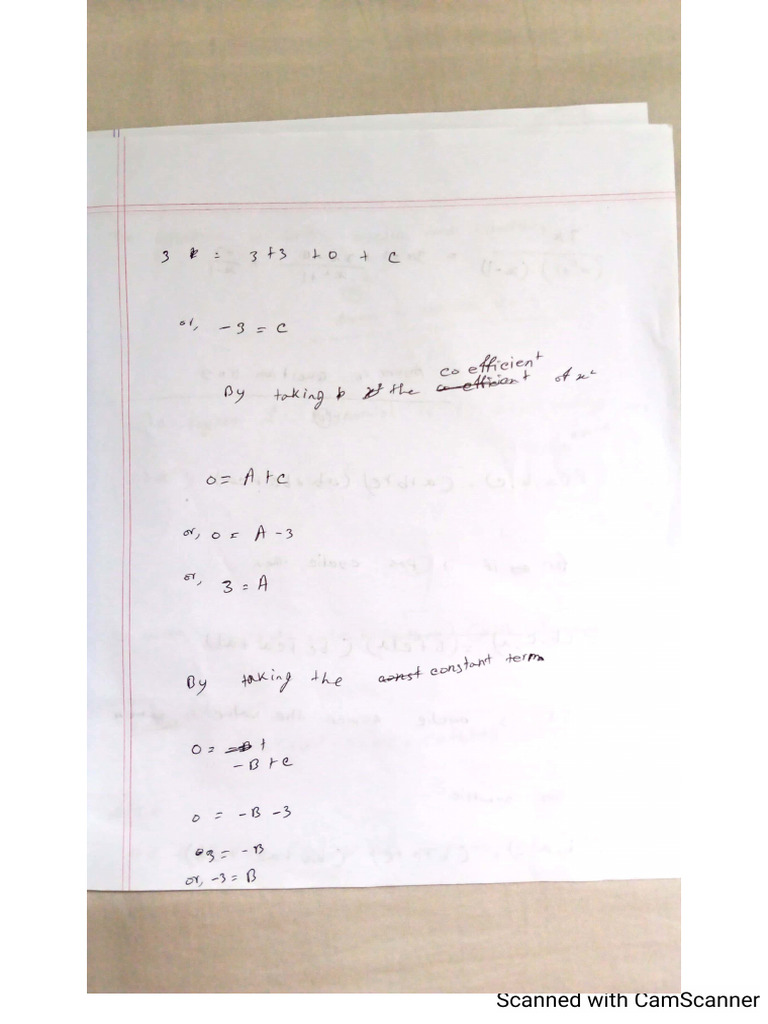 3 = 3+3 +0 + C
or, -3 = C
By taking the coefficient of x²
0 = A+C
or, 0 = A-3
or, 3 = A
By taking the constant term
0 = -B+C
0 = -B -3
3 = -B
or, -3 = B
Scanned with CamScanner